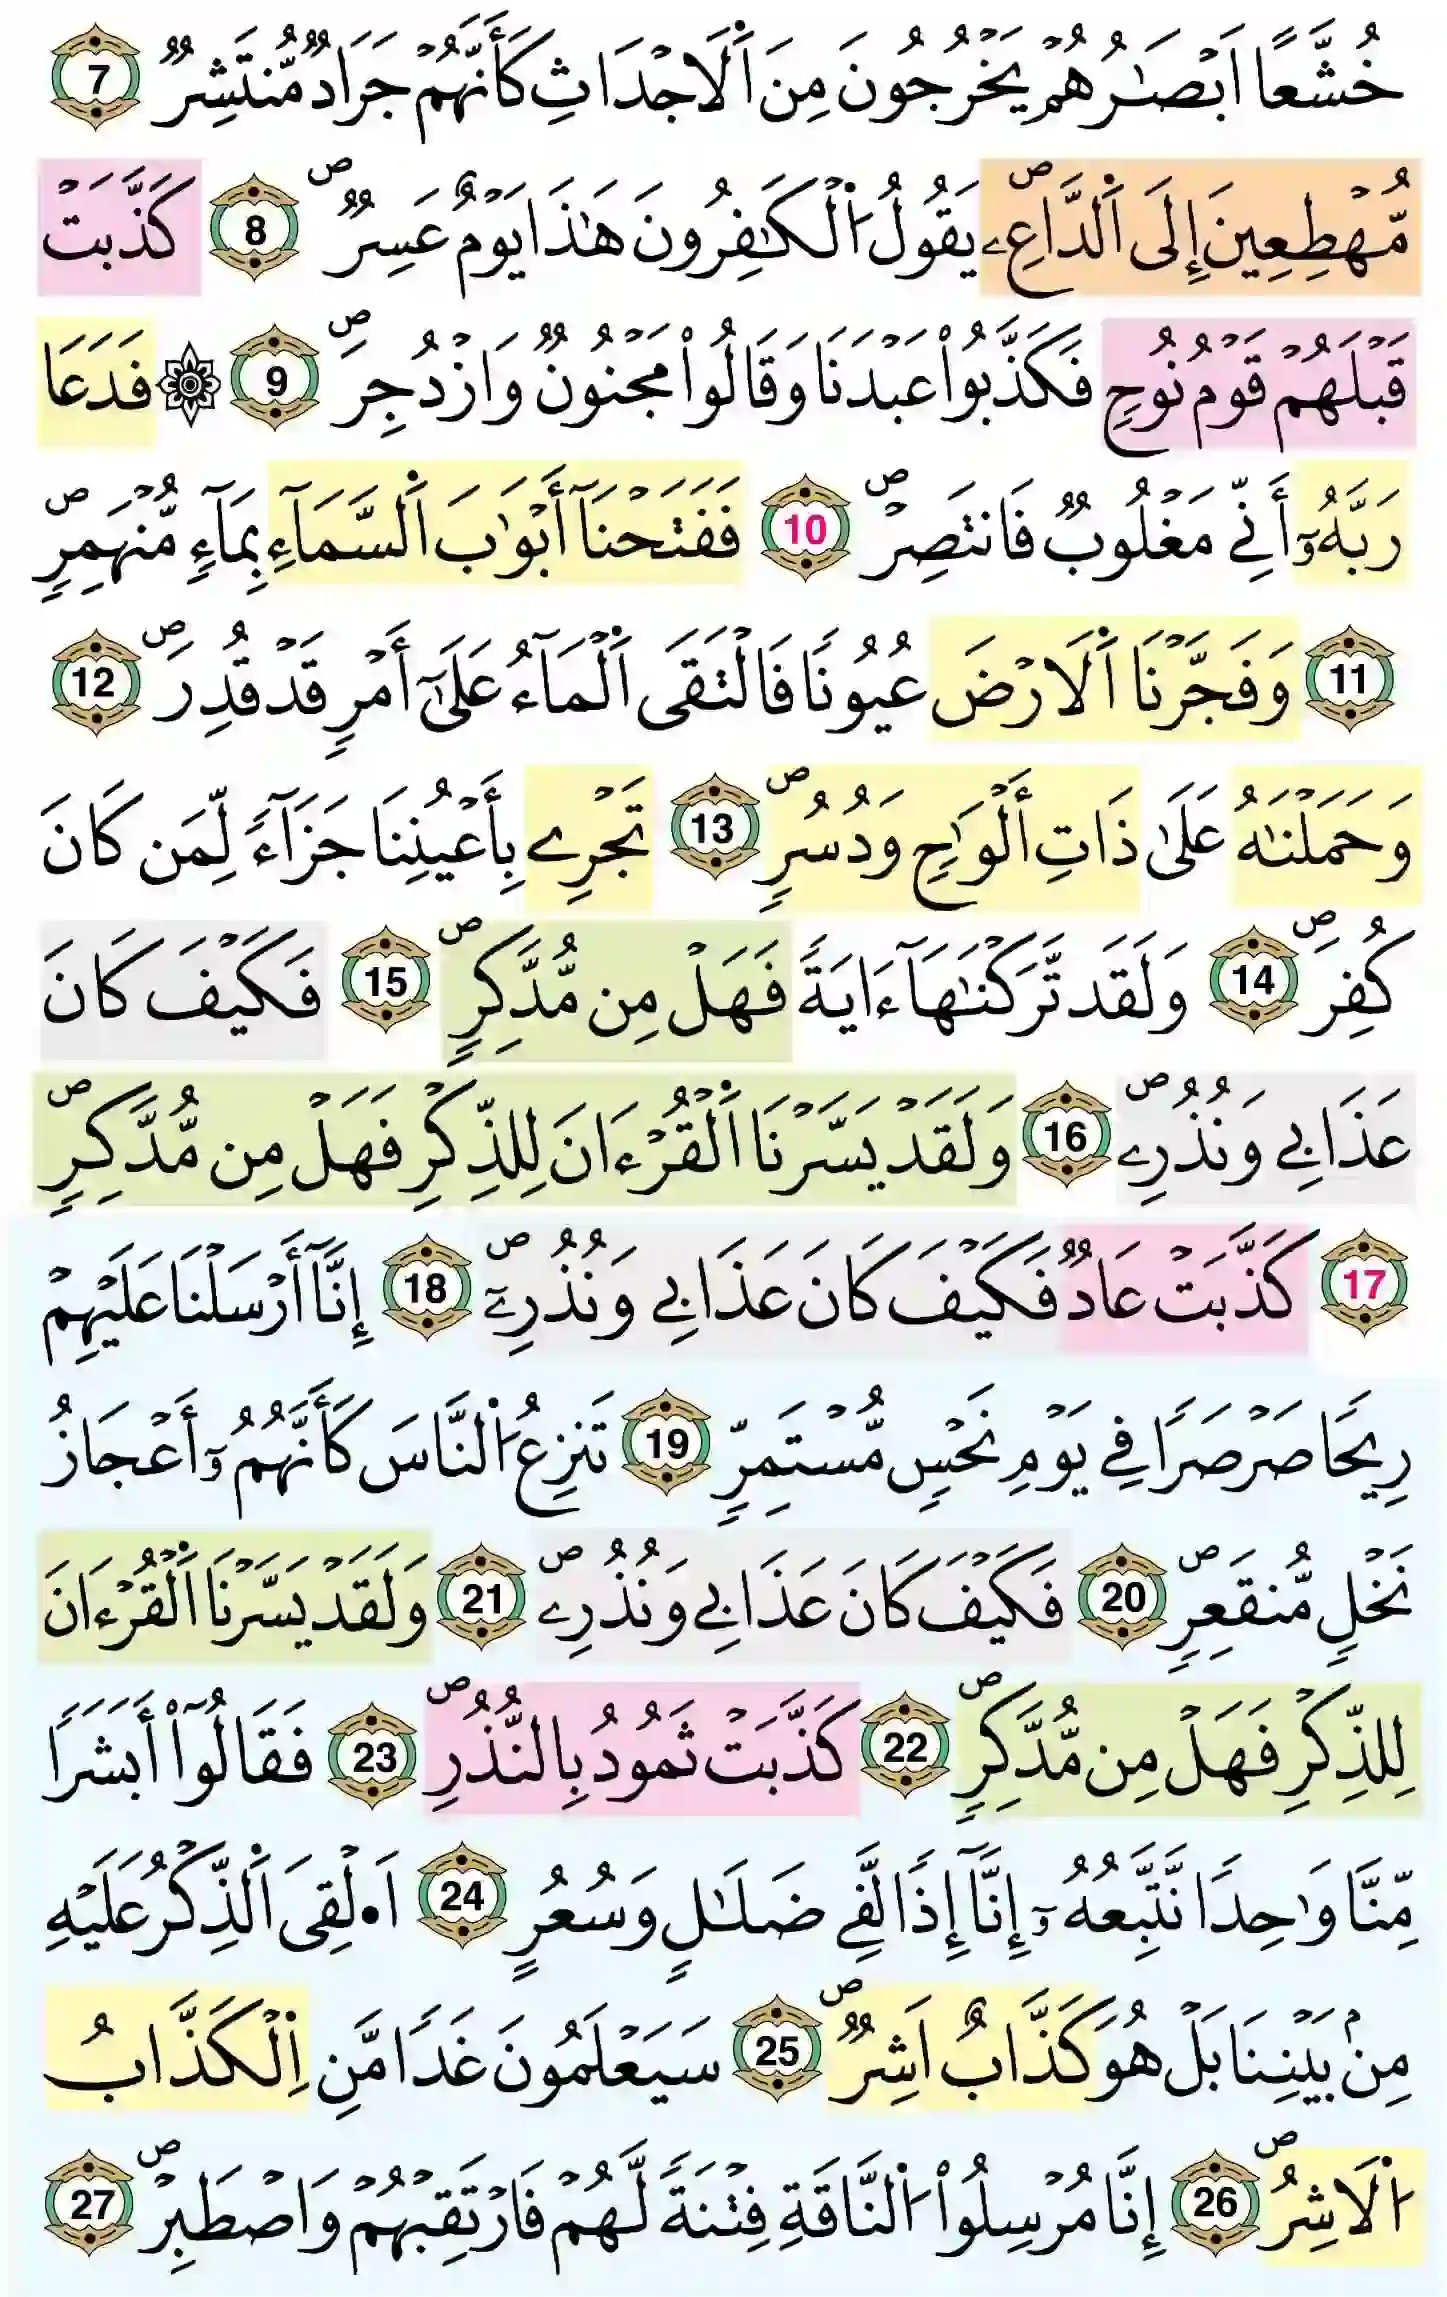 خُشَّعًا اَبْصَـٰرُهُمْ يَخْرُجُونَ مِنَ اَ۬لَاجْدَاثِ كَأَنَّهُمْ جَرَادٞ مُّنتَشِرٞ 7
مُّهْطِعِينَ إِلَى اَ۬لدَّاعِۦ ۖ يَقُولُ اُ۬لْكَـٰفِرُونَ هَـٰذَا يَوْمٌ عَسِرٞ ۖ 8 كَذَّبَتْ
قَبْلَهُمْ قَوْمُ نُوحٖ فَكَذَّبُواْ عَبْدَنَا وَقَالُواْ مَجْنُونٞ وَازْدُجِرَ ۖ 9 ۞ فَدَعَا
رَبَّهُۥٓ أَنِّے مَغْلُوبٞ فَانتَصِرْ ۖ 10 فَفَتَحْنَآ أَبْوَٰبَ اَ۬لسَّمَآءِ بِمَآءٖ مُّنْهَمِرٖ ۖ
11 وَفَجَّرْنَا اَ۬لَارْضَ عُيُونٗا فَالْتَقَى اَ۬لْمَآءُ عَلَىٰٓ أَمْرٖ قَدْ قُدِرَ ۖ 12
وَحَمَلْنَـٰهُ عَلَىٰ ذَاتِ أَلْوَٰحٖ وَدُسُرٖ ۖ 13 تَجْرِے بِأَعْيُنِنَا جَزَآءٗ لِّمَن كَانَ
كُفِرَ ۖ 14 وَلَقَد تَّرَكْنَـٰهَآ ءَايَةٗ فَهَلْ مِن مُّدَّكِرٖ ۖ 15 فَكَيْفَ كَانَ
عَذَابِے وَنُذُرِۦ ۖ 16 وَلَقَدْ يَسَّرْنَا اَ۬لْقُرْءَانَ لِلذِّكْرِ فَهَلْ مِن مُّدَّكِرٖ ۖ
17 كَذَّبَتْ عَادٞ فَكَيْفَ كَانَ عَذَابِے وَنُذُرِۦٓ ۖ 18 إِنَّآ أَرْسَلْنَا عَلَيْهِمْ
رِيحٗا صَرْصَرٗا فِے يَوْمِ نَحْسٖ مُّسْتَمِرّٖ 19 تَنزِعُ اُ۬لنَّاسَ كَأَنَّهُمُۥٓ أَعْجَازُ
نَخْلٖ مُّنقَعِرٖ ۖ 20 فَكَيْفَ كَانَ عَذَابِے وَنُذُرِۦ ۖ 21 وَلَقَدْ يَسَّرْنَا اَ۬لْقُرْءَانَ
لِلذِّكْرِ فَهَلْ مِن مُّدَّكِرٖ ۖ 22 كَذَّبَتْ ثَمُودُ بِالنُّذُرِ ۖ 23 فَقَالُوٓاْ أَبَشَرٗا
مِّنَّا وَٰحِدٗا نَّتَّبِعُهُۥٓ إِنَّآ إِذٗا لَّفِے ضَلَـٰلٖ وَسُعُرٍ 24 اَ۟لْقِىَ اَ۬لذِّكْرُ عَلَيْهِ
مِنۢ بَيْنِنَا بَلْ هُوَ كَذَّابٌ اَشِرٞ ۖ 25 سَيَعْلَمُونَ غَدٗا مَّنِ اِ۬لْكَذَّابُ
اُ۬لَاشِرُ ۖ 26 إِنَّا مُرْسِلُواْ اُ۬لنَّاقَةِ فِتْنَةٗ لَّهُمْ فَارْتَقِبْهُمْ وَاصْطَبِرْ ۖ 27